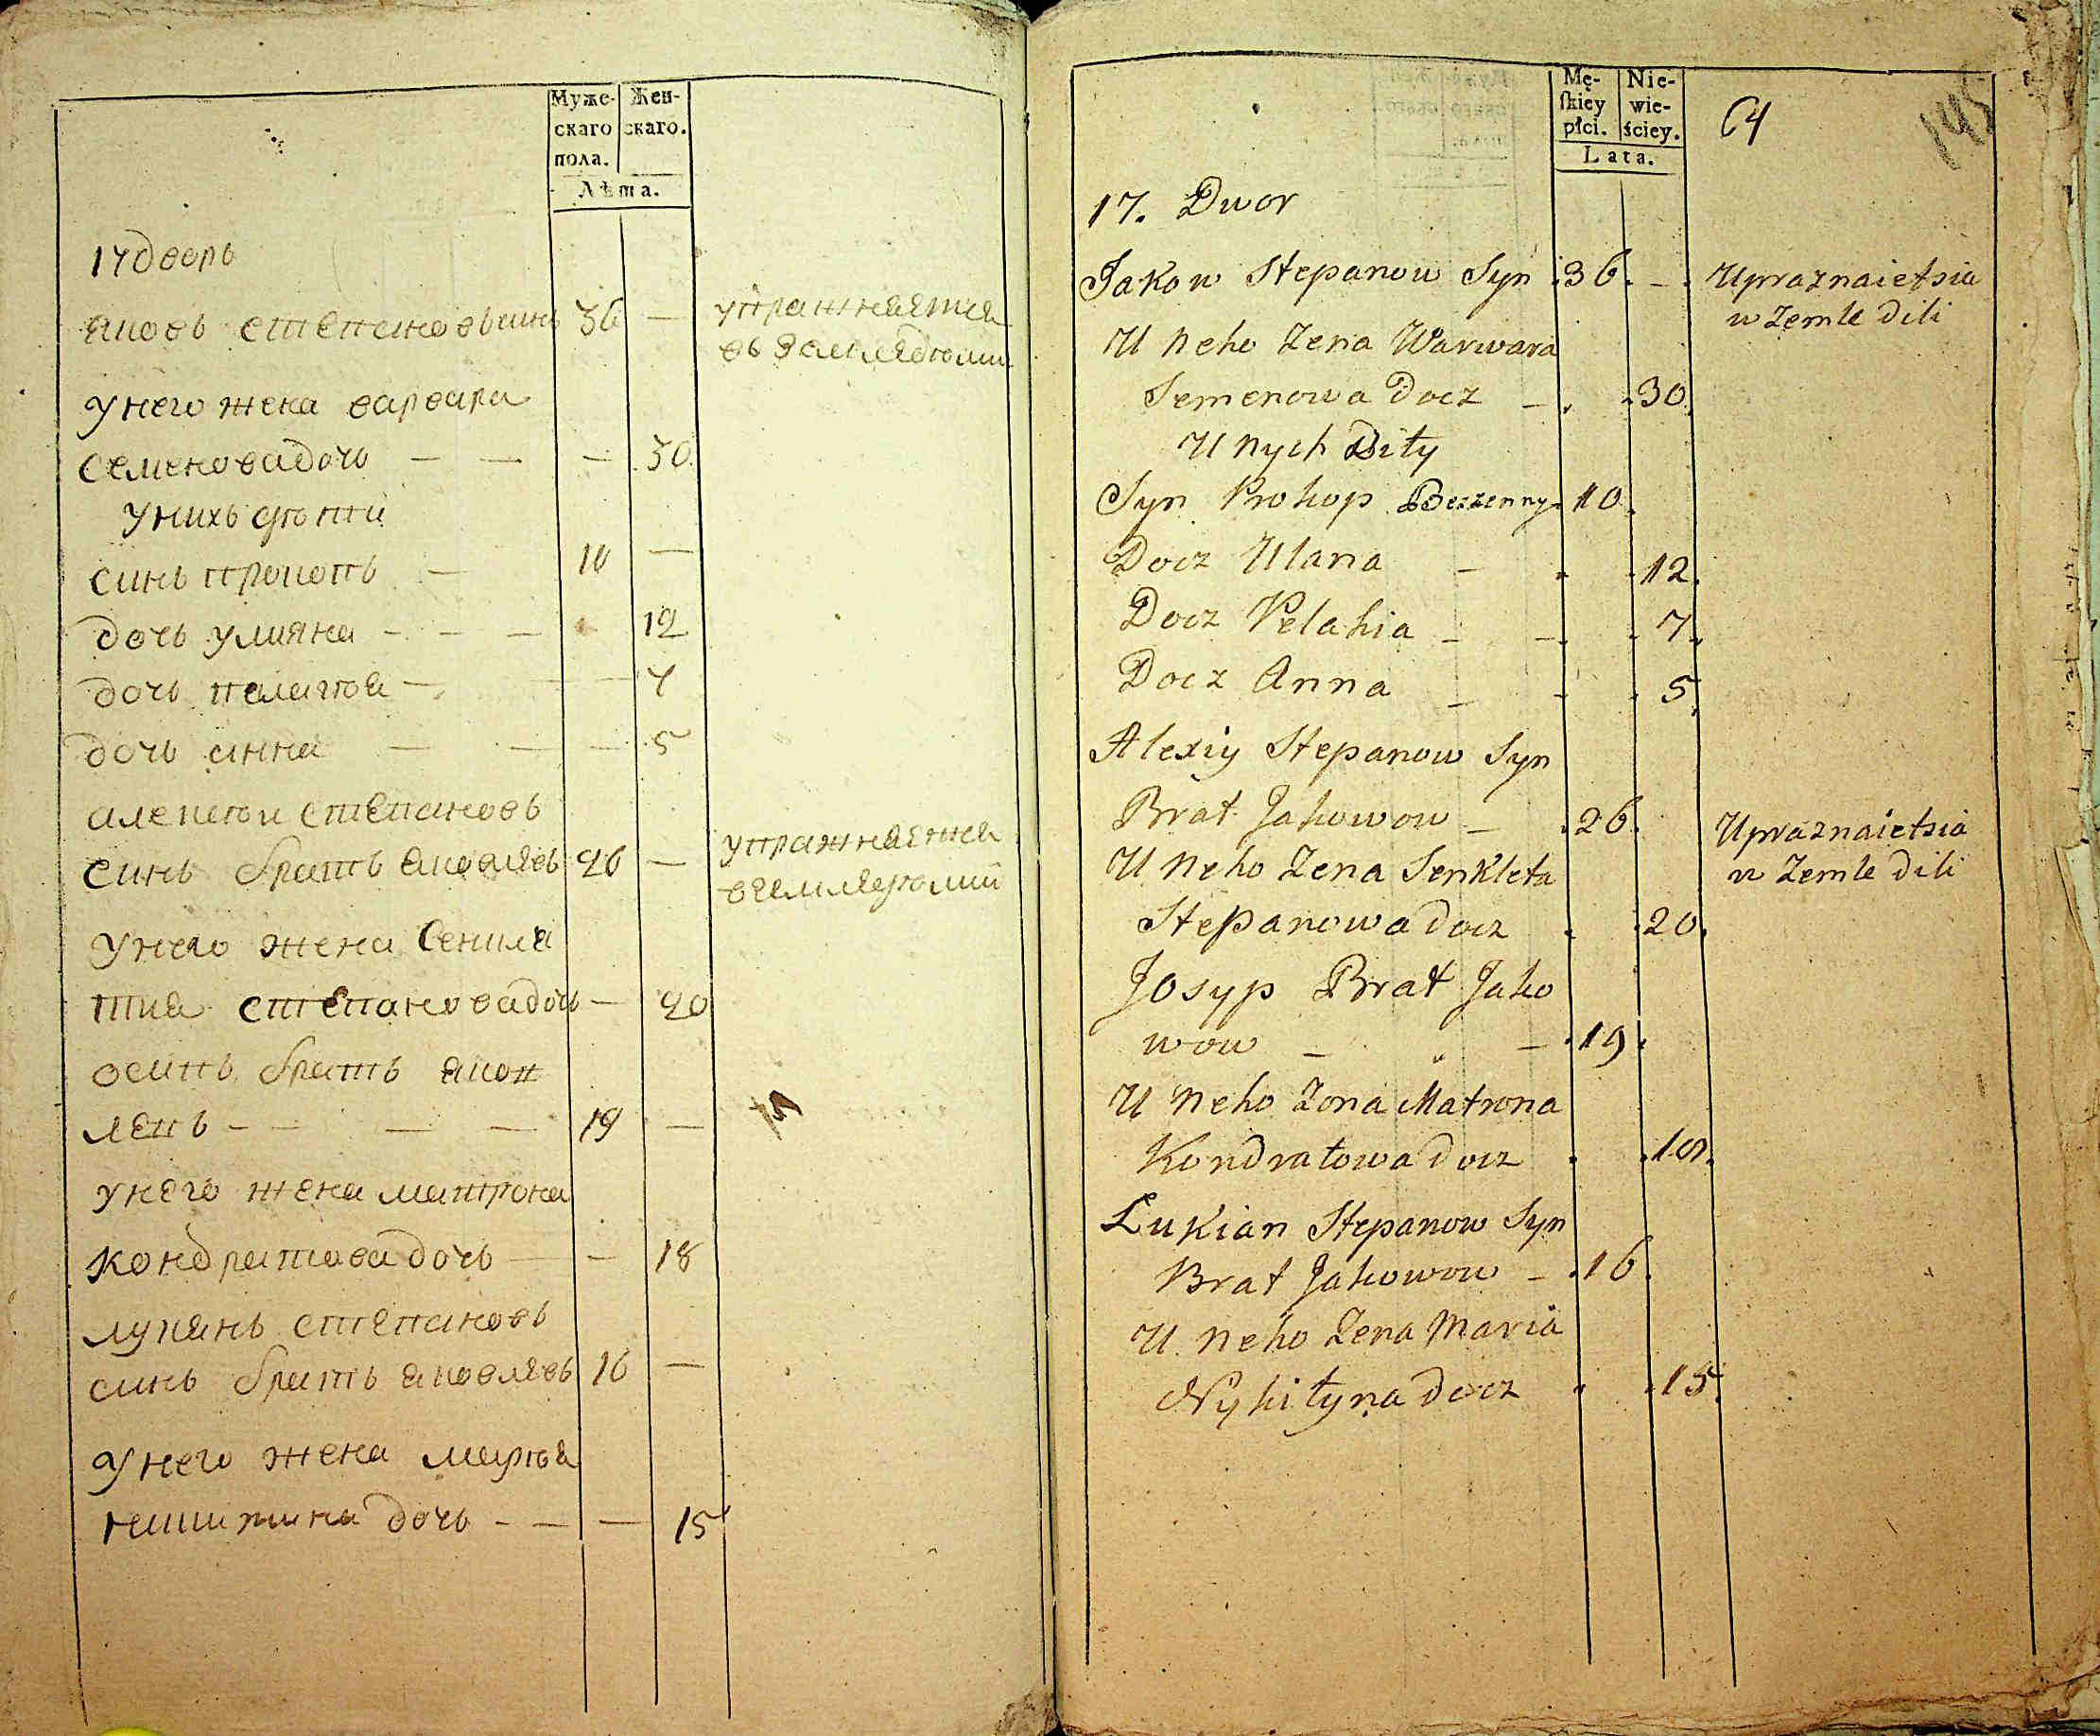 Муже-
скаго
пола.
Жен-
скаго.
Лѣта.
17 дворь
яковь степановь синь 36 —
упражняется
вь землядѣлии
у него жена варвара
Семеновадочь — — — 30.
у нихь дѣти
синь прокопь — 10 —
дочь улияна — — — 12
дочь палагѣя — — — 7
дочь анна — — — 5
алексѣи степановь
синь брать яковлявь 26 —
упражняется
в землядѣлии
у него жена Сенкле
тия степановадочь — 20
осипь брать яков
левь — — — — 19 —
у него жена матрона
Кондратовадочь — — 18
лукянь степановь
синь брать яковлявь 16 —
у него жена марѣя
никитина дочь — — — 15
Mę-
skiey
płci.
Nie-
wie-
ściey.
Lata.
64
145
17. Dwor
Jakow Stepanow Syn .36. — .
Uprażnaietsia
w Zemle dili
U Neho Zena Warwara
Semenowa docz — . . 30.
U Nych Dity
Syn Prokop Bezzenny 10.
Docz Ulana — . .12.
Docz Pelahia — — . . 7.
Docz Anna — . . 5.
Alexiy Stepanow Syn
Brat Jakowow — .26.
Uprażnaietsia
w Zemle dili
U Neho Zena Senkleta
Stepanowa docz . .20.
Josyp Brat Jako
wow — „ — .19.
U Neho Zona Matrona
Kondratowa docz . .18.
Lukian Stepanow Syn
Brat Jakowow — .16.
U Neho Zena Maria
Nykityna docz . .15.